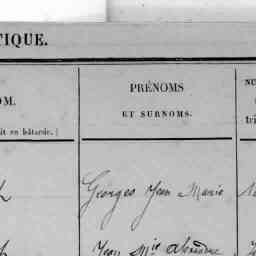 TIQUE.
PRÉNOMS
ET SURNOMS.
NU
OM.
it en bâtarde.)
tri
Georges Jean Marie
Jean Mie Alexandre